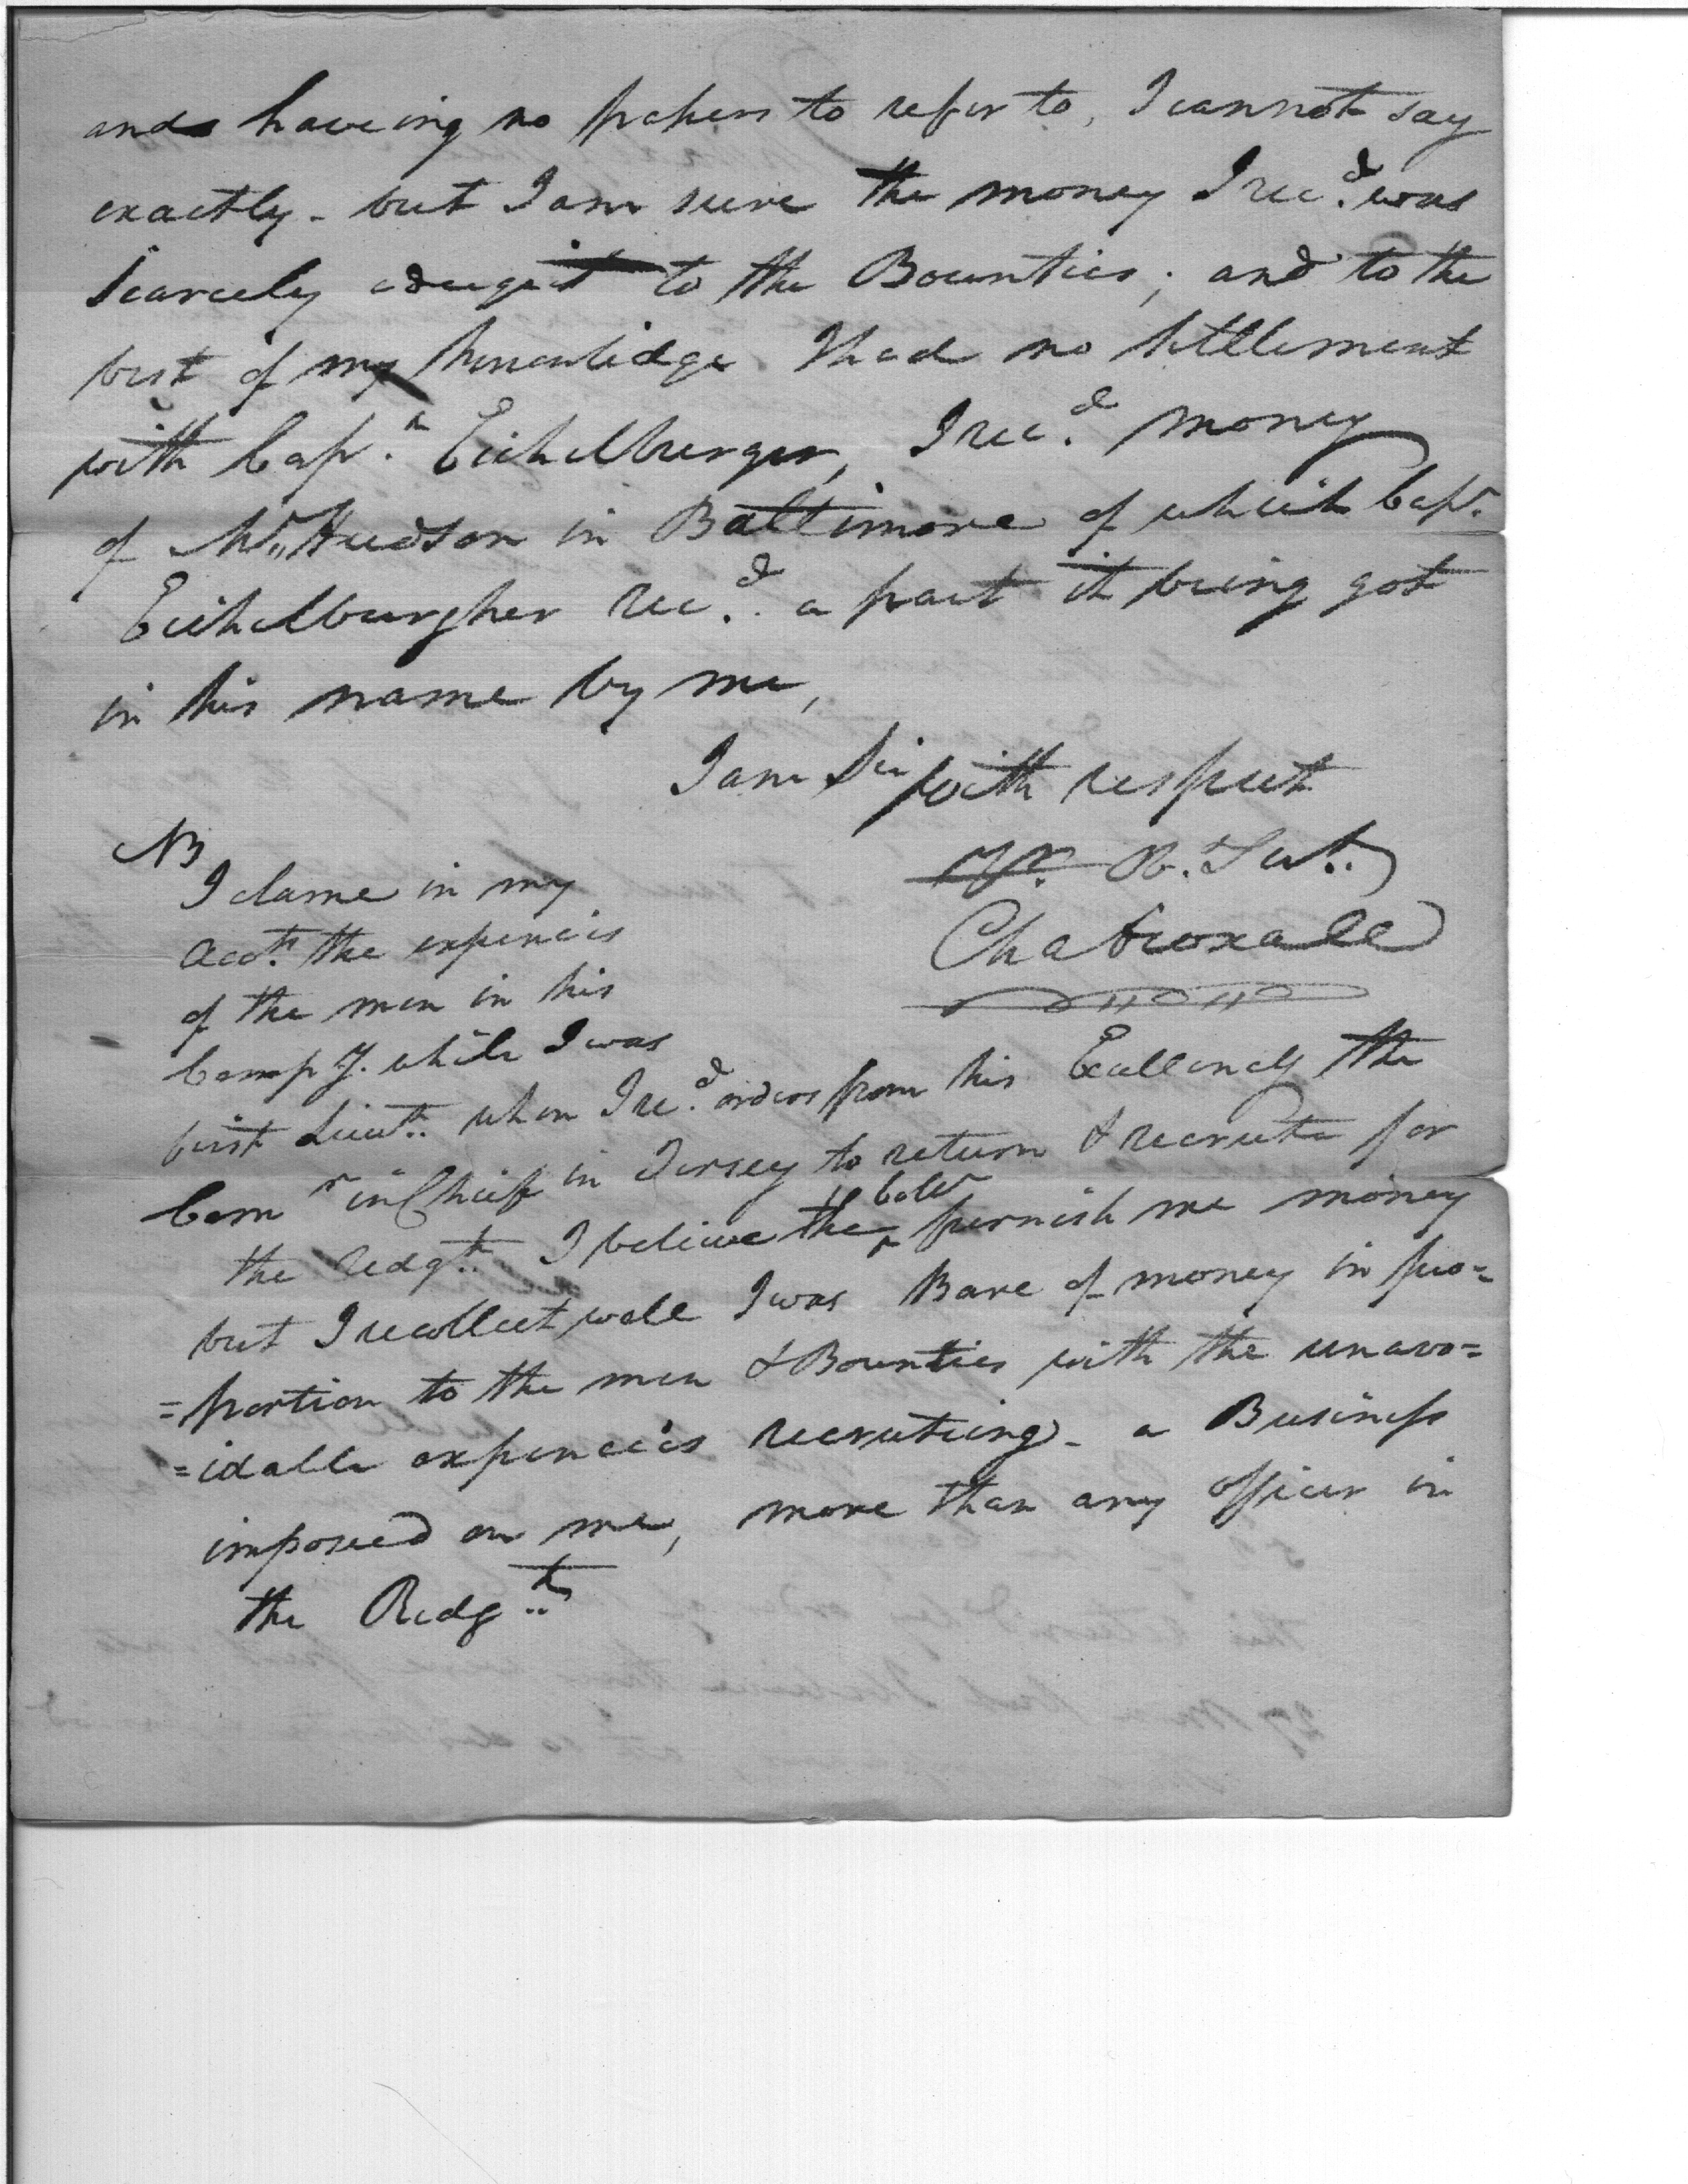 and haveing no papers to refer to, I cannot say
exactly - but I am sure the money I recd. was
scarcely adequit to the Bounties; and to the
best of my knowlidge I had no settlement
with Capn. Eichelburger, I recd. money
of Mr. Hudson in Baltimore of which Capt.
Eichelburgher recd. a part it being got
in his name by me,
I am Sir with respect
Yr. Ob. Sert.
Cha Croxall
NB
I clame in my
acct. the expencies
of the men in his
Compy. while I was
first Lieut. when I recd. orders from his Excellency the
Comr in Chief in Jersey to return & recrute for
the Redgt. I believe the Coll furnish me money
but I recollect well I was Bare of money in pro=
=portion to the men & Bounties with the unavo=
=idable expencies recruting - a Business
imposed on me, more than any officer in
the Redgt.